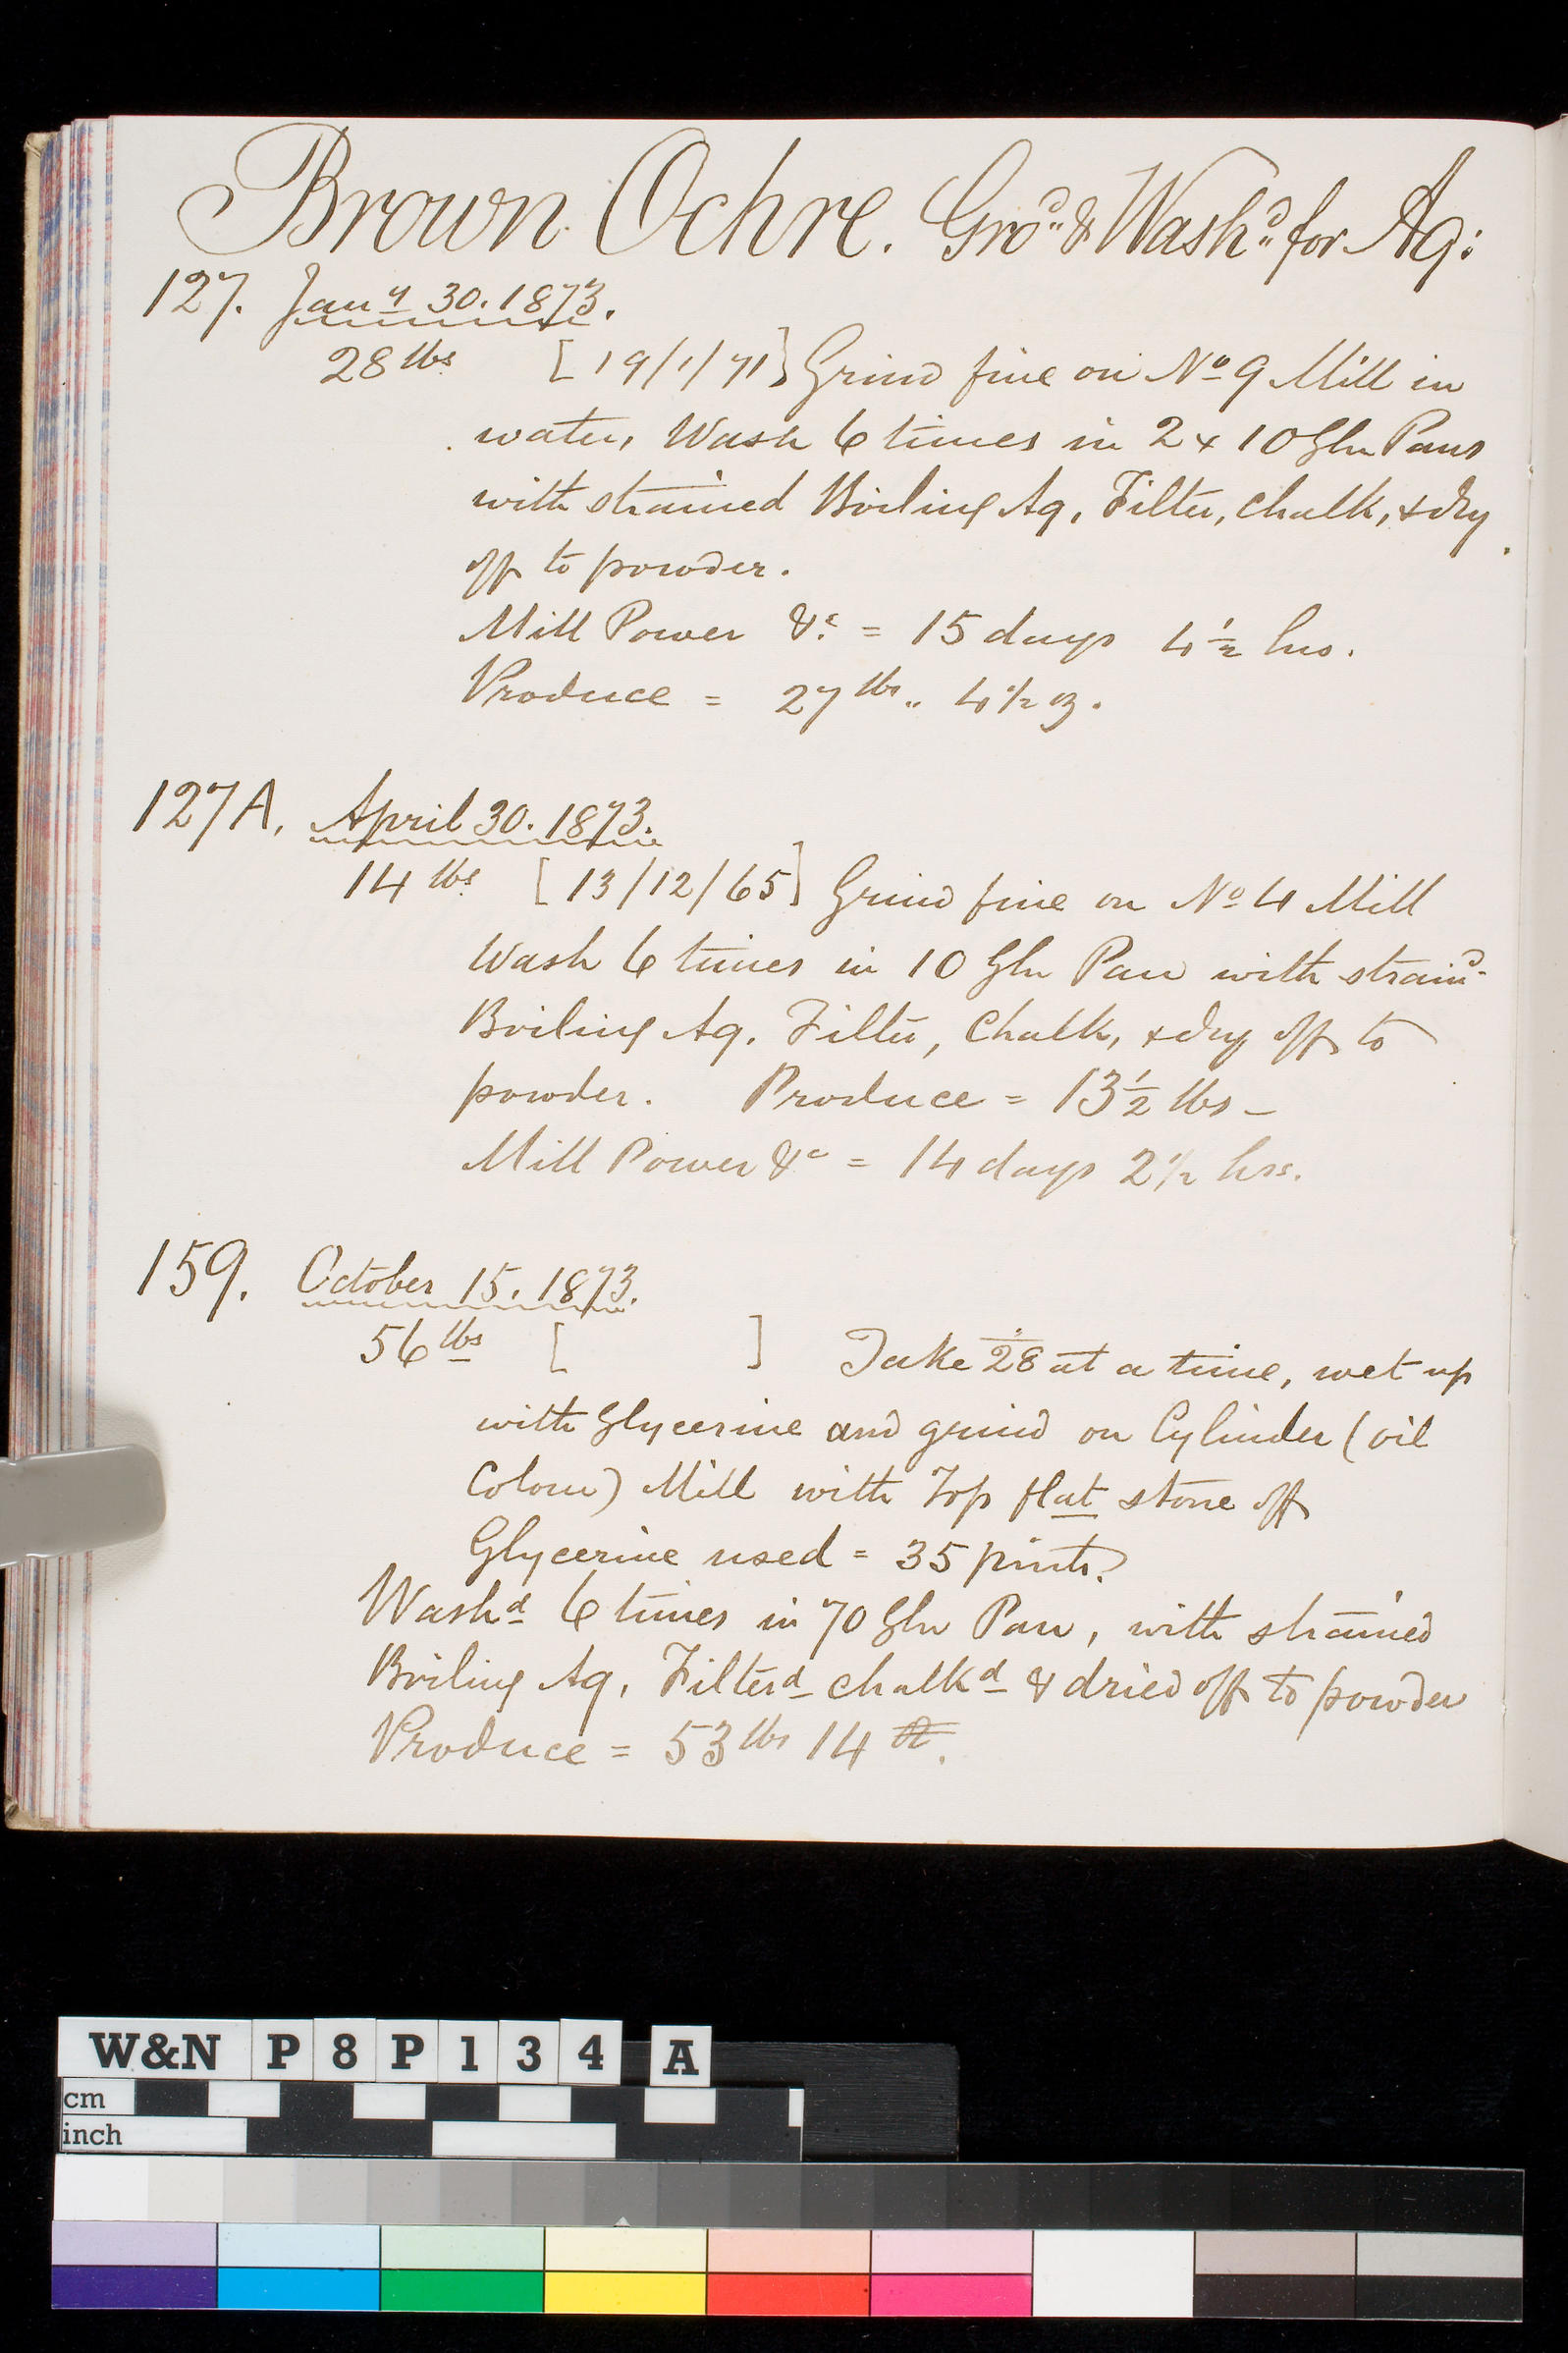 Brown Ochre. Gro.d & Wash.d for Aq:
127. Jany 30. 1873.
28 lbs [19/1/71] Grind fine on No 9 Mill in
water, Wash 6 times in 2 x 10 Gln Pans
with strained Boiling Aq, Filter, chalk, & dry
off to powder.
Mill Power &c = 15 days 4 1/2 hrs.
Produce = 27 lbs .. 4 1/2 oz.
127A. April 30. 1873.
14 lbs [13/12/65] Grind fine on No 4 Mill
Wash 6 times in 10 Gln Pan with straind
Boiling Aq. Filter, Chalk, & dry off to
powder. Produce = 13 1/2 lbs –
Mill Power &c = 14 days 2 1/2 hrs.
159. October 15. 1873.
56 lbs [ ] Take 28 at a time, wet up
with Glycerine and grind on Cylinder (oil
Colour) Mill with Top flat stone off
Glycerine used = 35 pints.
Washd 6 times in 70 Gln Pan, with strained
Boiling Aq, Filterd chalkd & dried off to powder
Produce = 53 lbs 14
W&N P8P134 A
cm
inch